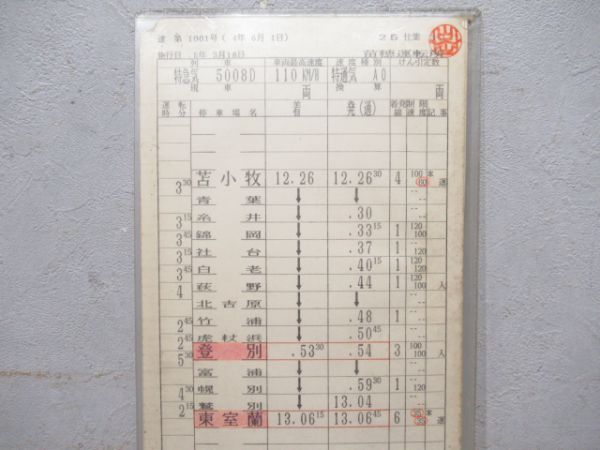 達 第 1001号( 4年 6月 1日)
25 仕業
施行日 5年 3月18日
苗穂運転所
列 車 車両最高速度 速 度 種 別 けん引定数
特急気 5008D 110 KM/H 特通気 A0
現 車 両 換 算 両
運転時分 停 車 場 名 着 発(通) 着発線 制限速度 記事
苫小牧 12.26 12.26 30 4 100 60 本 運
3 30
青葉 ↓ ↓
糸井 ↓ .30
3 15
錦岡 ↓ .33 15 1 120 100
3 45
社台 ↓ .37 1 120
3 15
白老 ↓ .40 15 1 120
3 45
萩野 ↓ .44 1 120 100 入
4
北吉原 ↓ ↓
竹浦 ↓ .48 1 120
2 45
虎杖浜 ↓ .50 45
2 45
登別 .53 30 .54 3 100 100 入
5 30
富浦 ↓ ↓
幌別 ↓ .59 30 1 120
4 30
鷲別 ↓ 13.04
2 15
東室蘭 13.06 15 13.06 45 6 35 35 本 運